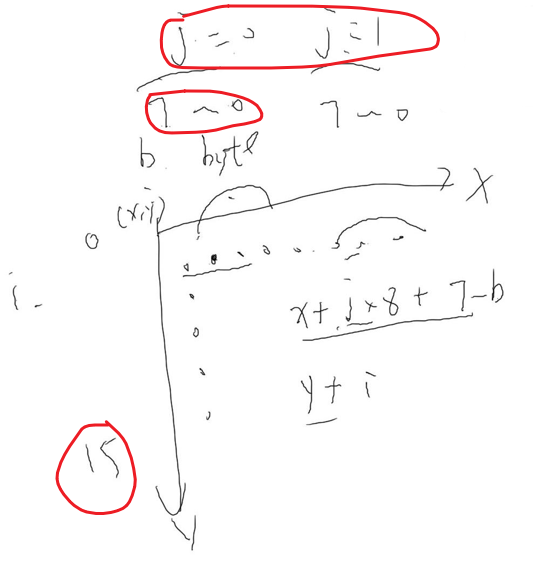 j = 0 j = 1
7 ~ 0 7 ~ 0
b byte
(x,y) X
0
i
x + j × 8 + 7 - b
y + i
15
Y